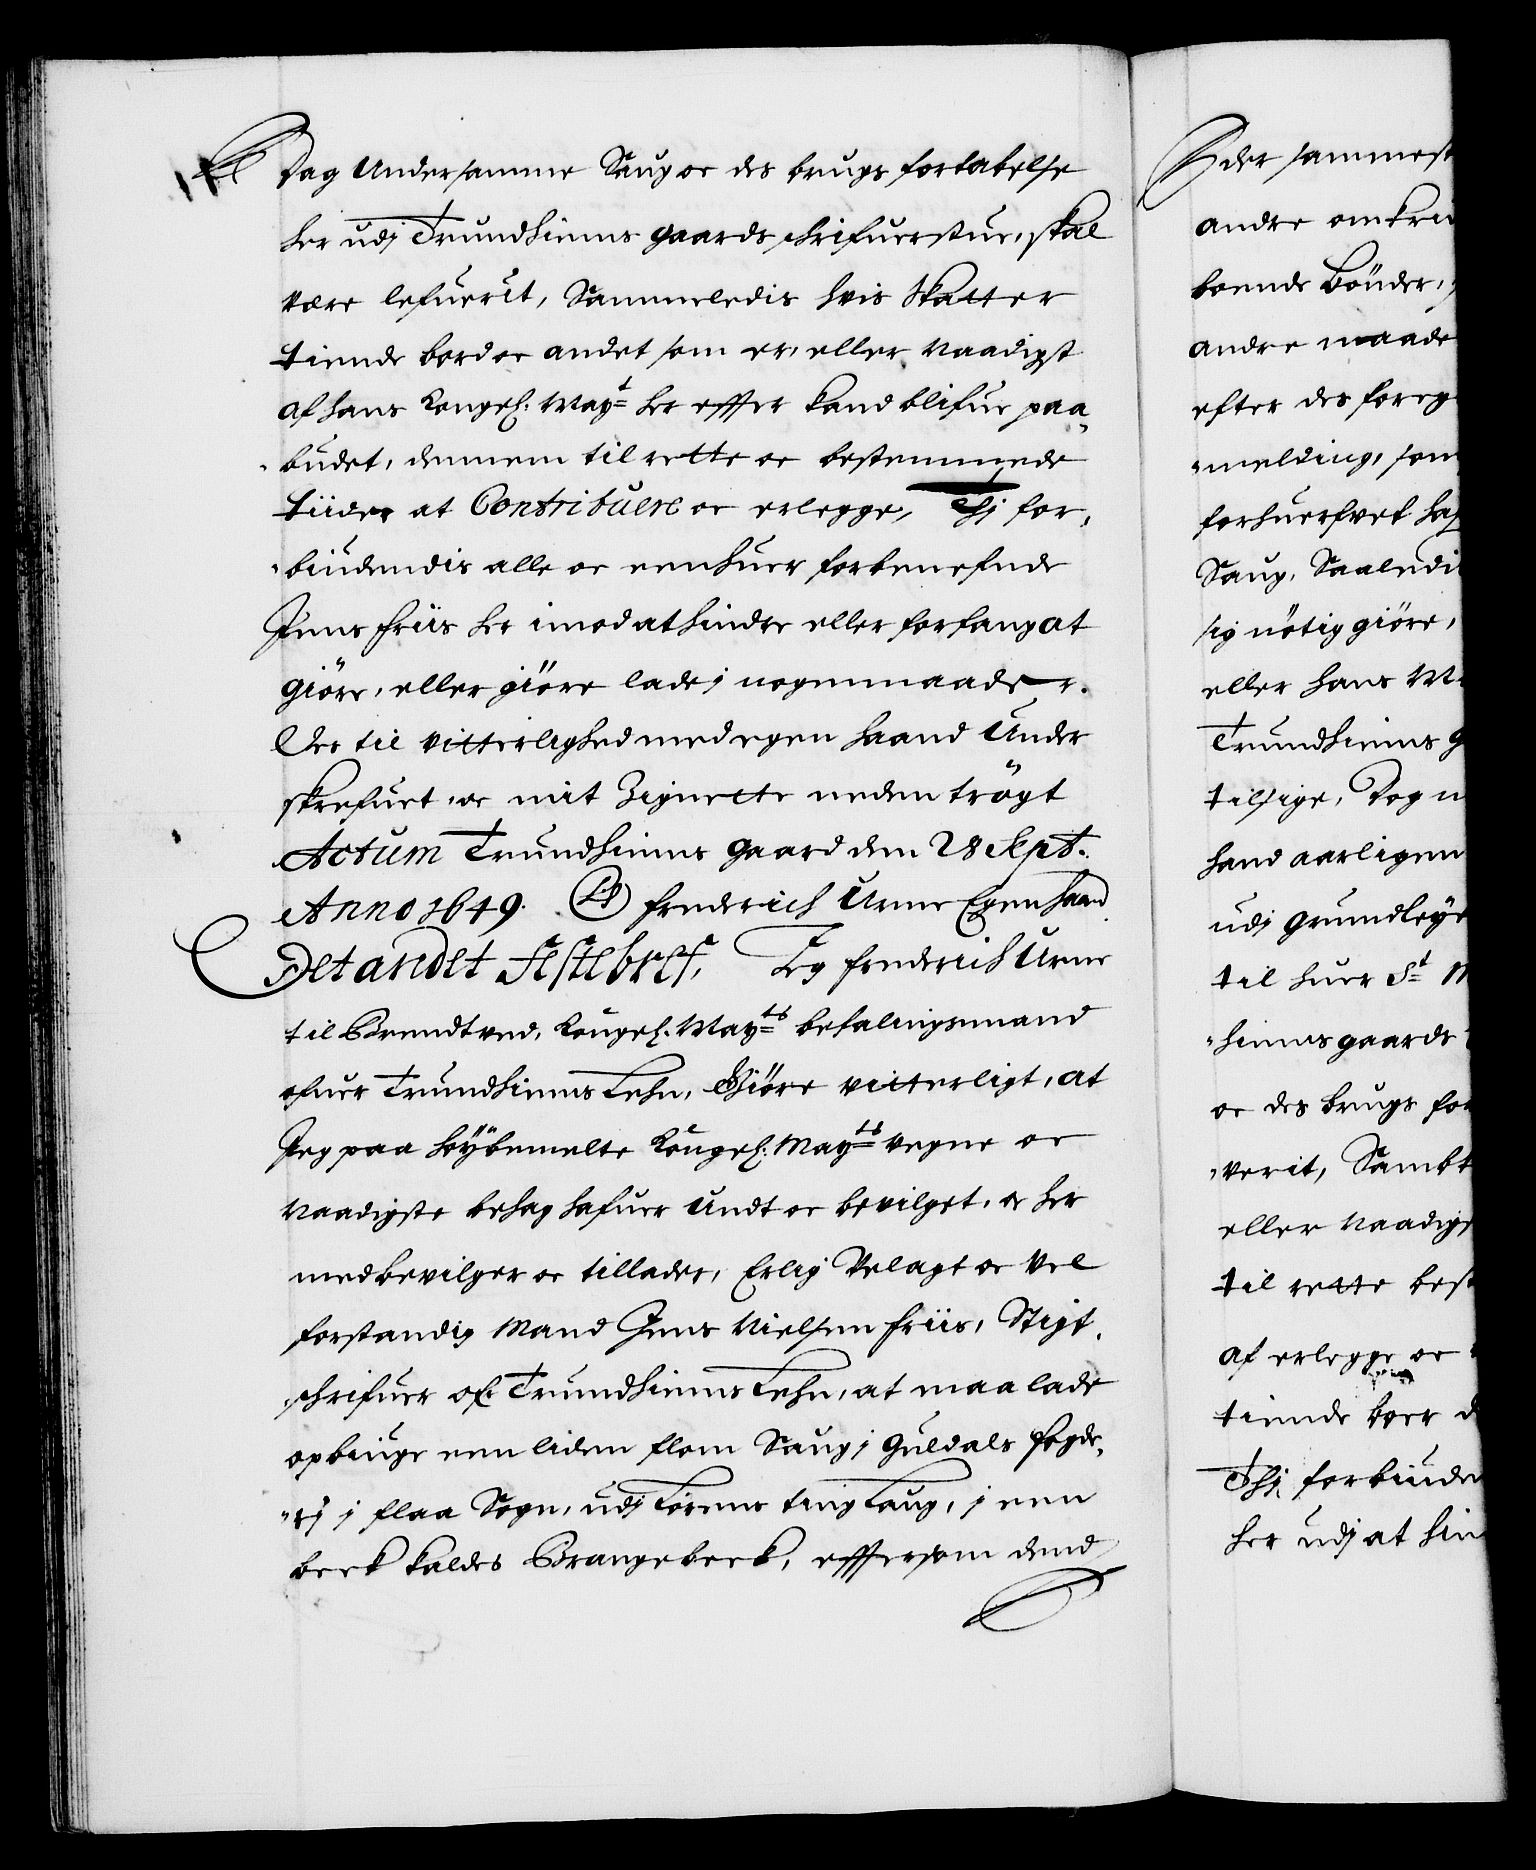 Dag Under samme Saug oc des brugs fortabelse
her udj Trundhiems gaards schrifuerstue, skal
være lefuerit, Sammeledis hvis Skatter
tiende bord oc andet som er, eller Naadigst
af hans Kongel: Mayt her effter kand blifue paa„
„budet, dennem til rette oc bestemmede
tiider at Contribuere oc erlegge, Thj for„
„biudendis alle oc eenhuer forbenefnde
Jens friis her imod at hindre eller forfang at
giöre, eller giöre lade j nogenmaader.
Des til vitterlighed med egen haand Under
skrefuet, oc mit Zignette neden trögt
Actum Trundhiems gaard den 28 Sept.
Anno 1649. LS frederich Urne Egen haand
Det andet Festebref, Jeg frederich Urne
til Brendtved, Kongel. Mayts befalingsmand
ofuer Trundhiems Lehn, Giöre vitterligt, at
Jeg paa höybemelte Kongel: Mayts vegne oc
Naadigste behag hafuer Undt oc bevilget, oc her
med bevilger oc tillader, Erlig Velagt oc Vel
forstandig Mand Jens Nielsen friis, Stigt„
schrifuer ofr Trundhiems Lehn, at maa lade
opbiuge een liden flom Saug j Guldals fogde„
„rj j flaa Sogn, udj Lörens ting Laug, j een
beck kaldes Brangebeck, effersom dend
der sammest
andre omkrin
boende Bönder,
andre maade
efter des foreg
„melding, som
forhuerfvet ha
Saug, Saaledi
sig nötig giöre,
eller hans M
Trundhiems g
tilsige, Dog
hand aarligen
udj grundleye
til huer St M
„hiems gaards
oc des brugs for
„verit, Sambt
eller Naadigs
til rette best
af erlegge oc
tiende bær d
Thj forbiude
her udj at hin